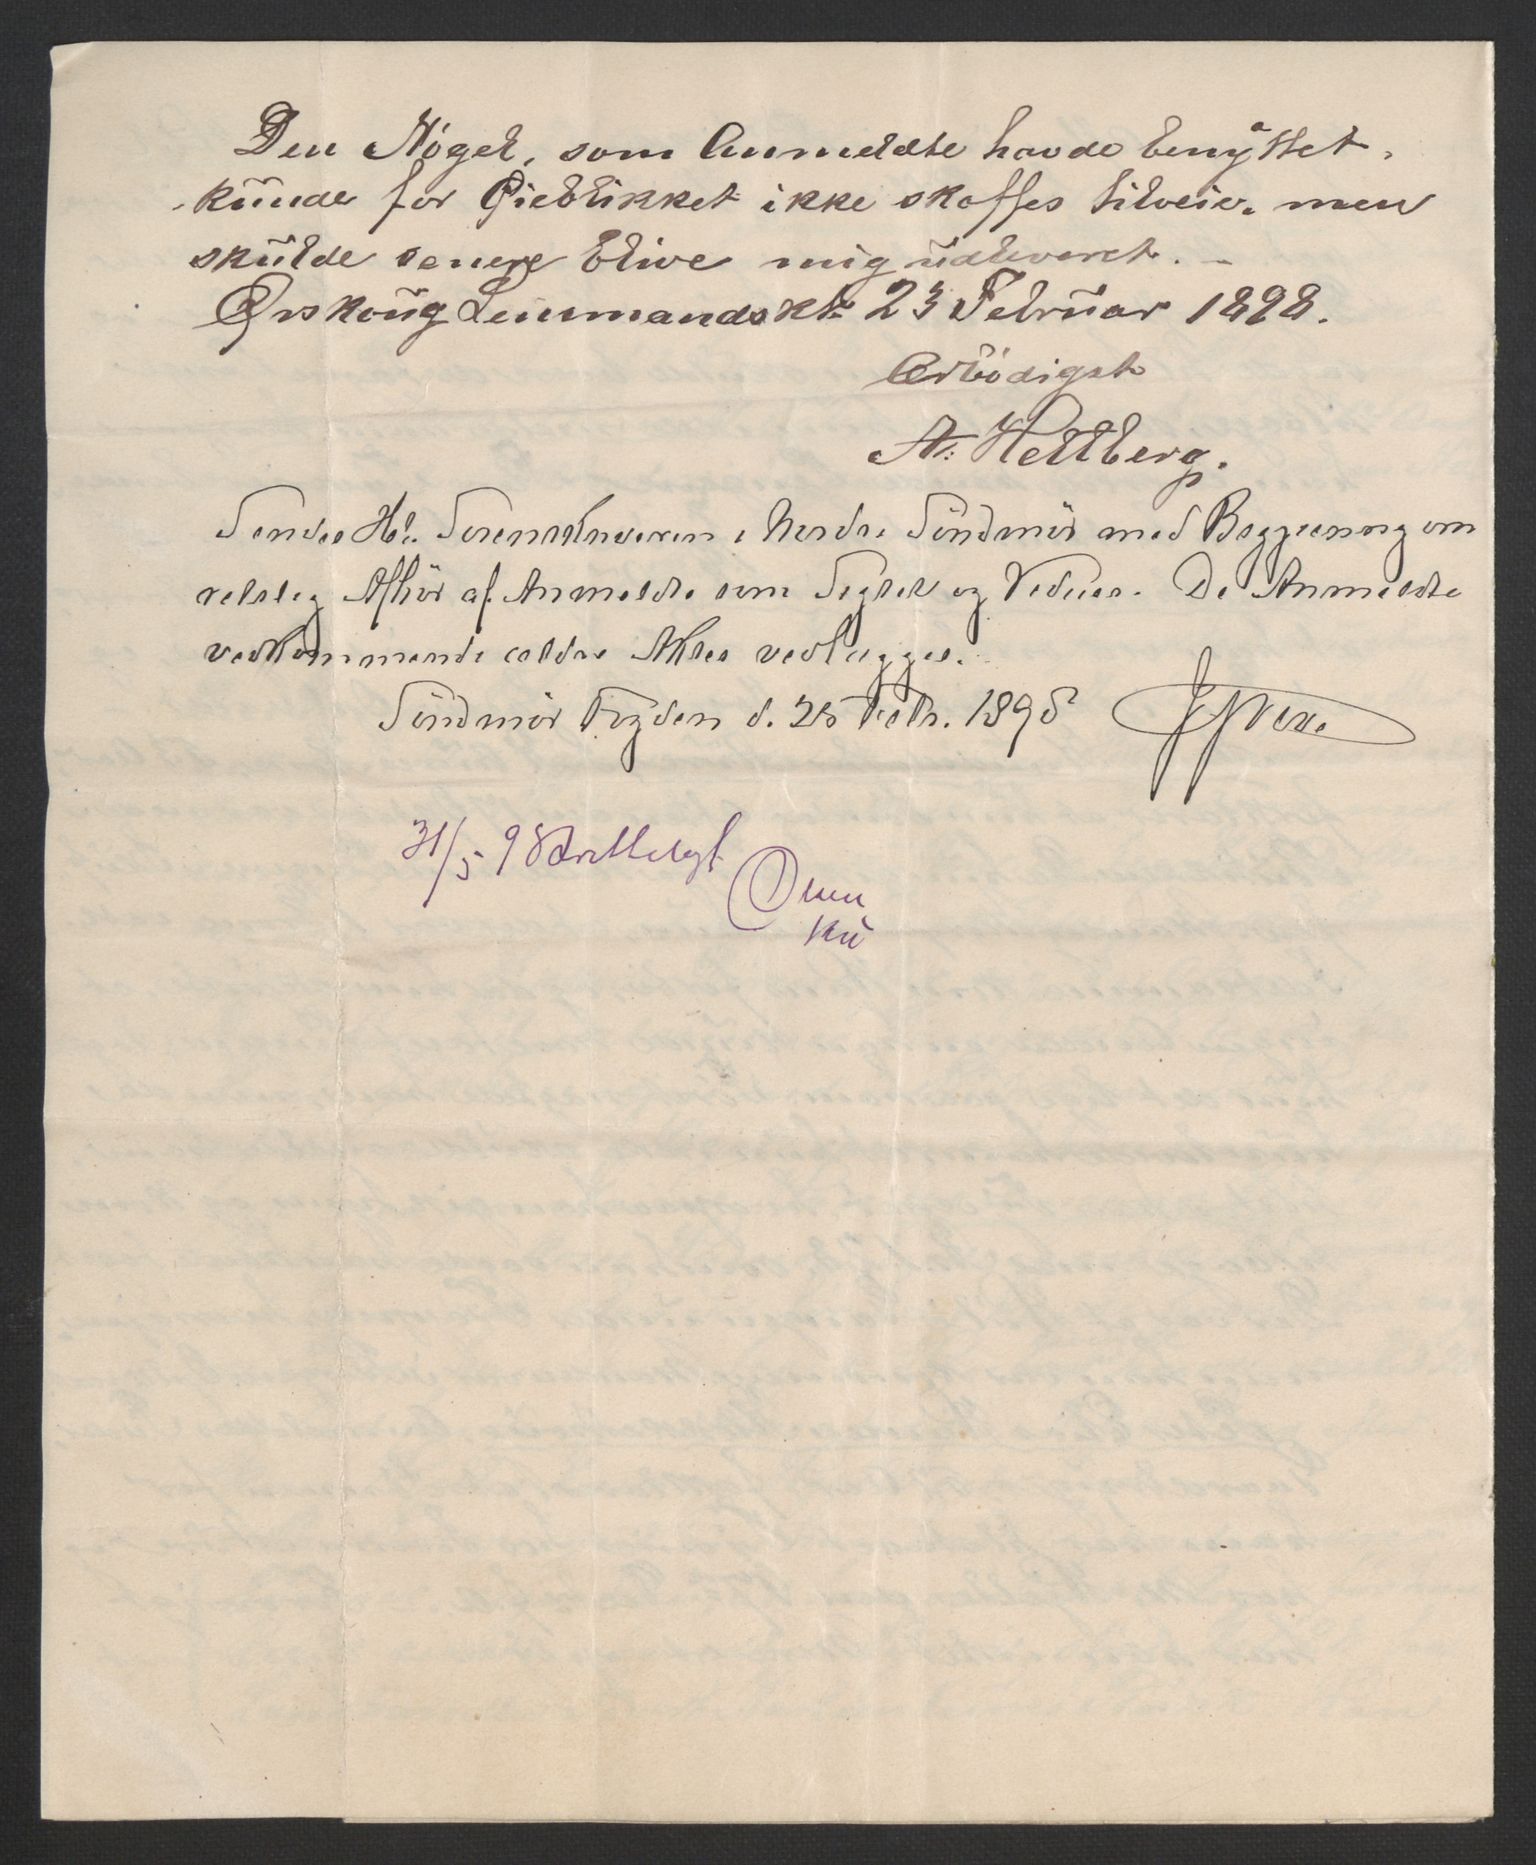 Den Nøgel, som Anmeldte havde benyttet,
kunde for Øieblikket ikke skaffes tilveie, men
skulde senere blive mig udleveret. –
Ørskoug Lensmandskt. 23 Februar 1898.
Ærbödigst
A. Hettberg.
Sendes Hr. Sorenskriveren i Nordre Söndmör med Begjæring om
retslig Afhör af Anmeldte som Sigtet og Vidner. De Anmeldte
vedkommende ældre Akter vedlægges.
Söndmör Fogderi d. 25 Febr. 1898
31/5 98 Fremlagt
Owen